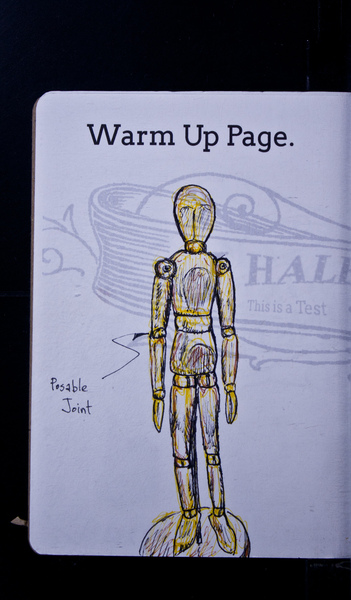 Warm Up Page.
HALF
This is a Test
Posable
Joint